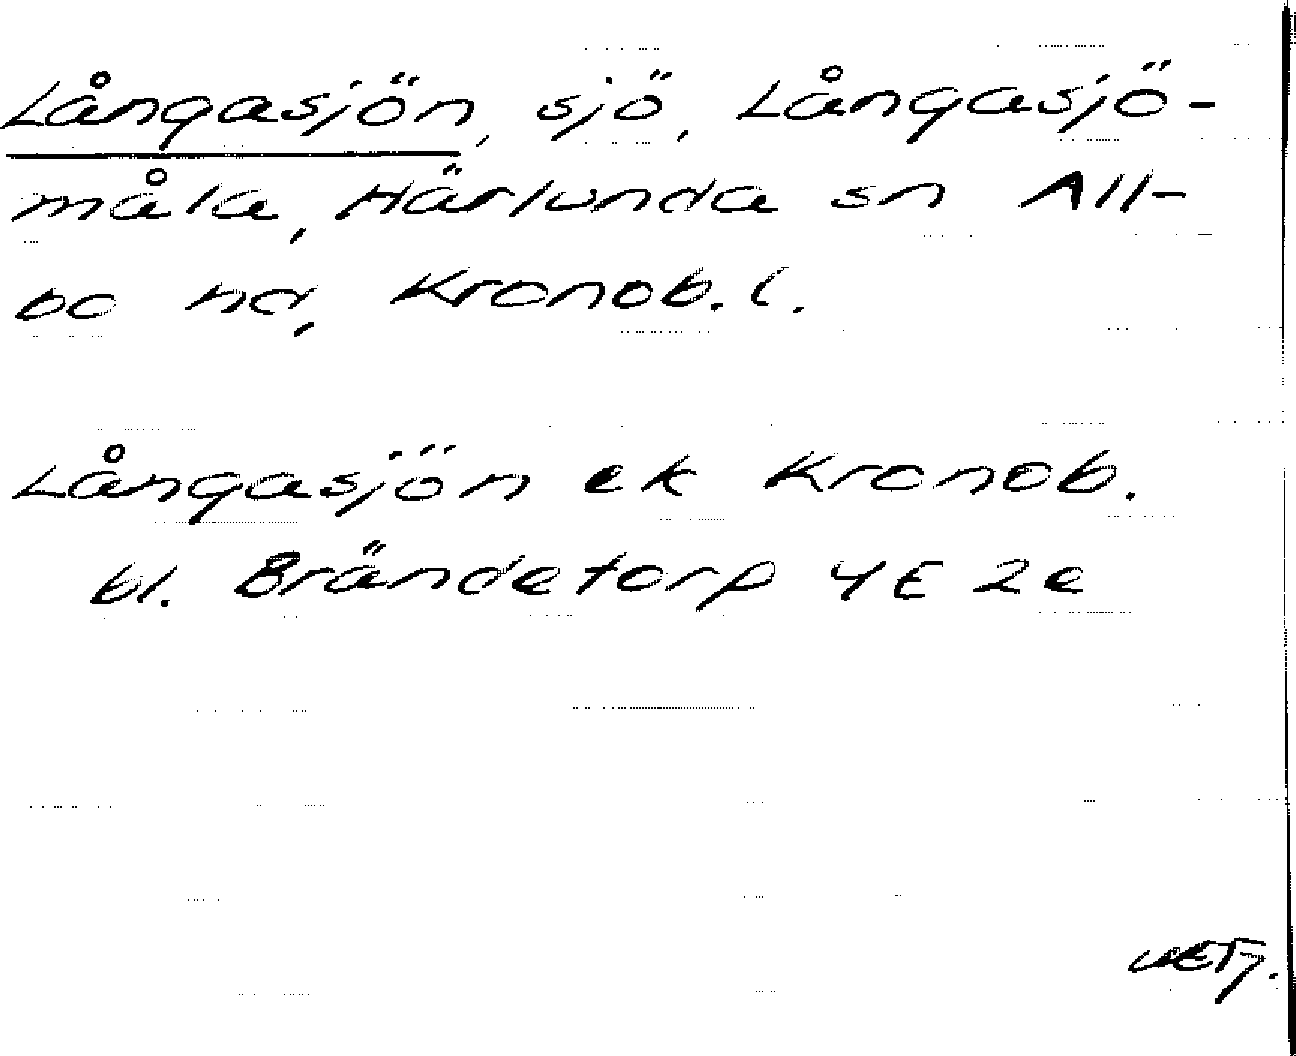 Långasjön, sjö, Långasjö-
måla, Härlunda sn All-
bo hd, Kronob. l.
Långasjön ek Kronob.
bl. Brändetorp 4E 2e